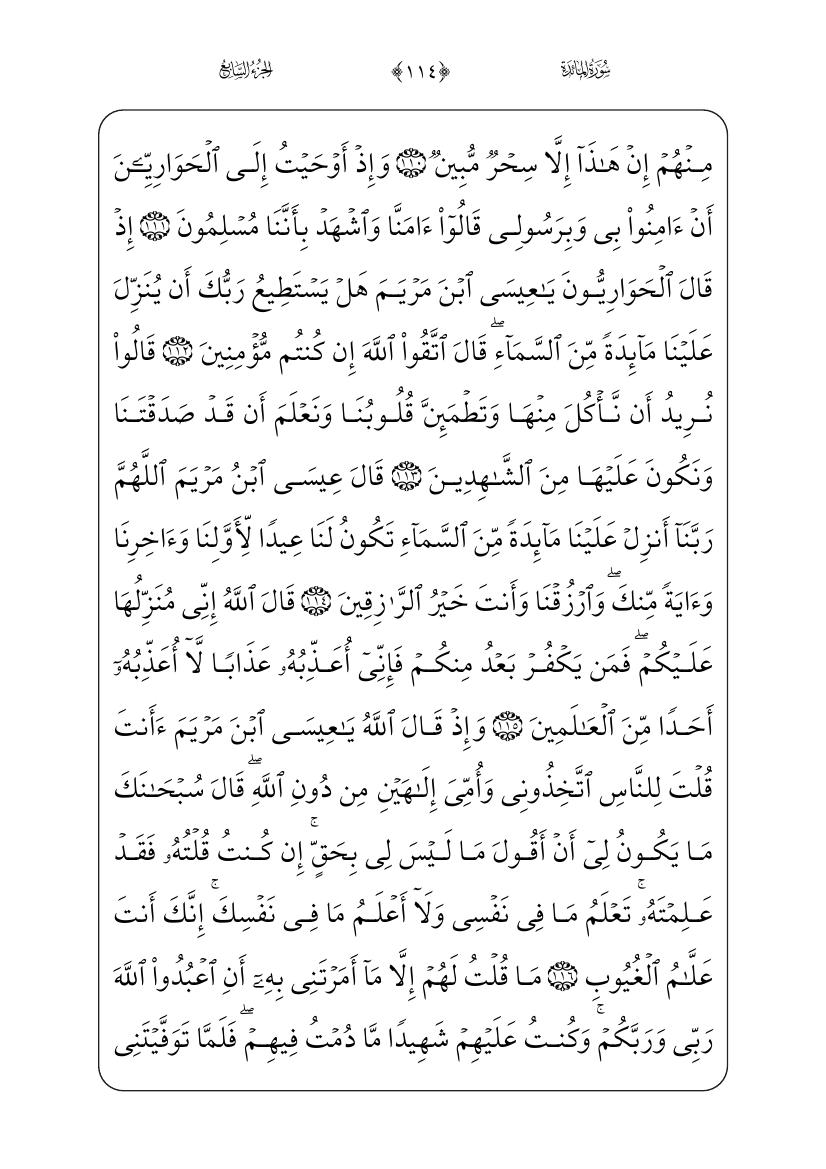 سُورَةُ المَائدَة ﴿١١٤﴾ الجُزءُ السَّابِع
مِنۡهُمۡ إِنۡ هَٰذَآ إِلَّا سِحۡرٞ مُّبِينٞ ١١٠ وَإِذۡ أَوۡحَيۡتُ إِلَى ٱلۡحَوَارِيِّـۧنَ
أَنۡ ءَامِنُواْ بِي وَبِرَسُولِي قَالُوٓاْ ءَامَنَّا وَٱشۡهَدۡ بِأَنَّنَا مُسۡلِمُونَ ١١١ إِذۡ
قَالَ ٱلۡحَوَارِيُّونَ يَٰعِيسَى ٱبۡنَ مَرۡيَمَ هَلۡ يَسۡتَطِيعُ رَبُّكَ أَن يُنَزِّلَ
عَلَيۡنَا مَآئِدَةٗ مِّنَ ٱلسَّمَآءِۖ قَالَ ٱتَّقُواْ ٱللَّهَ إِن كُنتُم مُّؤۡمِنِينَ ١١٢ قَالُواْ
نُرِيدُ أَن نَّأۡكُلَ مِنۡهَا وَتَطۡمَئِنَّ قُلُوبُنَا وَنَعۡلَمَ أَن قَدۡ صَدَقۡتَنَا
وَنَكُونَ عَلَيۡهَا مِنَ ٱلشَّٰهِدِينَ ١١٣ قَالَ عِيسَى ٱبۡنُ مَرۡيَمَ ٱللَّهُمَّ
رَبَّنَآ أَنزِلۡ عَلَيۡنَا مَآئِدَةٗ مِّنَ ٱلسَّمَآءِ تَكُونُ لَنَا عِيدٗا لِّأَوَّلِنَا وَءَاخِرِنَا
وَءَايَةٗ مِّنكَۖ وَٱرۡزُقۡنَا وَأَنتَ خَيۡرُ ٱلرَّٰزِقِينَ ١١٤ قَالَ ٱللَّهُ إِنِّي مُنَزِّلُهَا
عَلَيۡكُمۡۖ فَمَن يَكۡفُرۡ بَعۡدُ مِنكُمۡ فَإِنِّيٓ أُعَذِّبُهُۥ عَذَابٗا لَّآ أُعَذِّبُهُۥٓ
أَحَدٗا مِّنَ ٱلۡعَٰلَمِينَ ١١٥ وَإِذۡ قَالَ ٱللَّهُ يَٰعِيسَى ٱبۡنَ مَرۡيَمَ ءَأَنتَ
قُلۡتَ لِلنَّاسِ ٱتَّخِذُونِي وَأُمِّيَ إِلَٰهَيۡنِ مِن دُونِ ٱللَّهِۖ قَالَ سُبۡحَٰنَكَ
مَا يَكُونُ لِيٓ أَنۡ أَقُولَ مَا لَيۡسَ لِي بِحَقٍّۚ إِن كُنتُ قُلۡتُهُۥ فَقَدۡ
عَلِمۡتَهُۥۚ تَعۡلَمُ مَا فِي نَفۡسِي وَلَآ أَعۡلَمُ مَا فِي نَفۡسِكَۚ إِنَّكَ أَنتَ
عَلَّٰمُ ٱلۡغُيُوبِ ١١٦ مَا قُلۡتُ لَهُمۡ إِلَّا مَآ أَمَرۡتَنِي بِهِۦٓ أَنِ ٱعۡبُدُواْ ٱللَّهَ
رَبِّي وَرَبَّكُمۡۚ وَكُنتُ عَلَيۡهِمۡ شَهِيدٗا مَّا دُمۡتُ فِيهِمۡۖ فَلَمَّا تَوَفَّيۡتَنِي